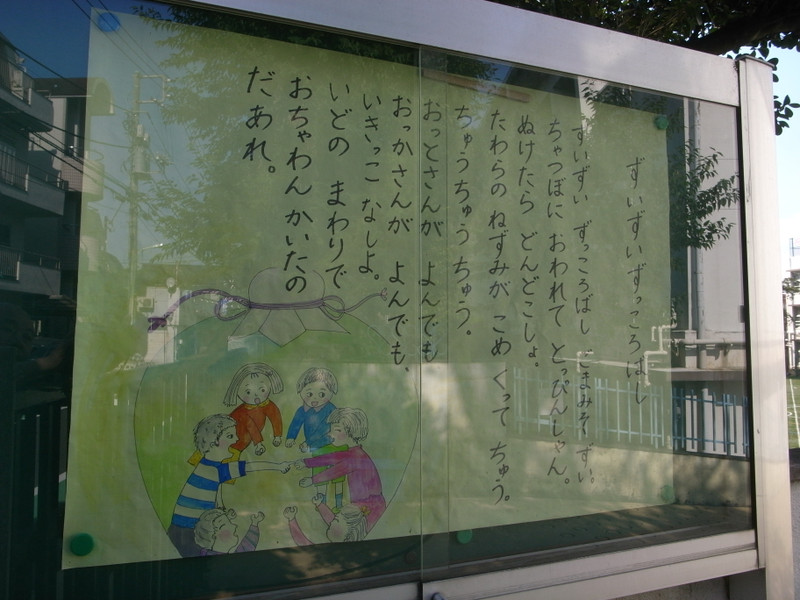 ずいずいずっころばし
ずいずい ずっころばし ごまみそ ずい。
ちゃつぼに おわれて とっぴんしゃん。
ぬけたら どんどこしょ。
たわらの ねずみが こめ くって ちゅう。
ちゅうちゅう ちゅう。
おっとさんが よんでも
おっかさんが よんでも、
いきっこ なしよ。
いどの まわりで
おちゃわん かいたの
だあれ。